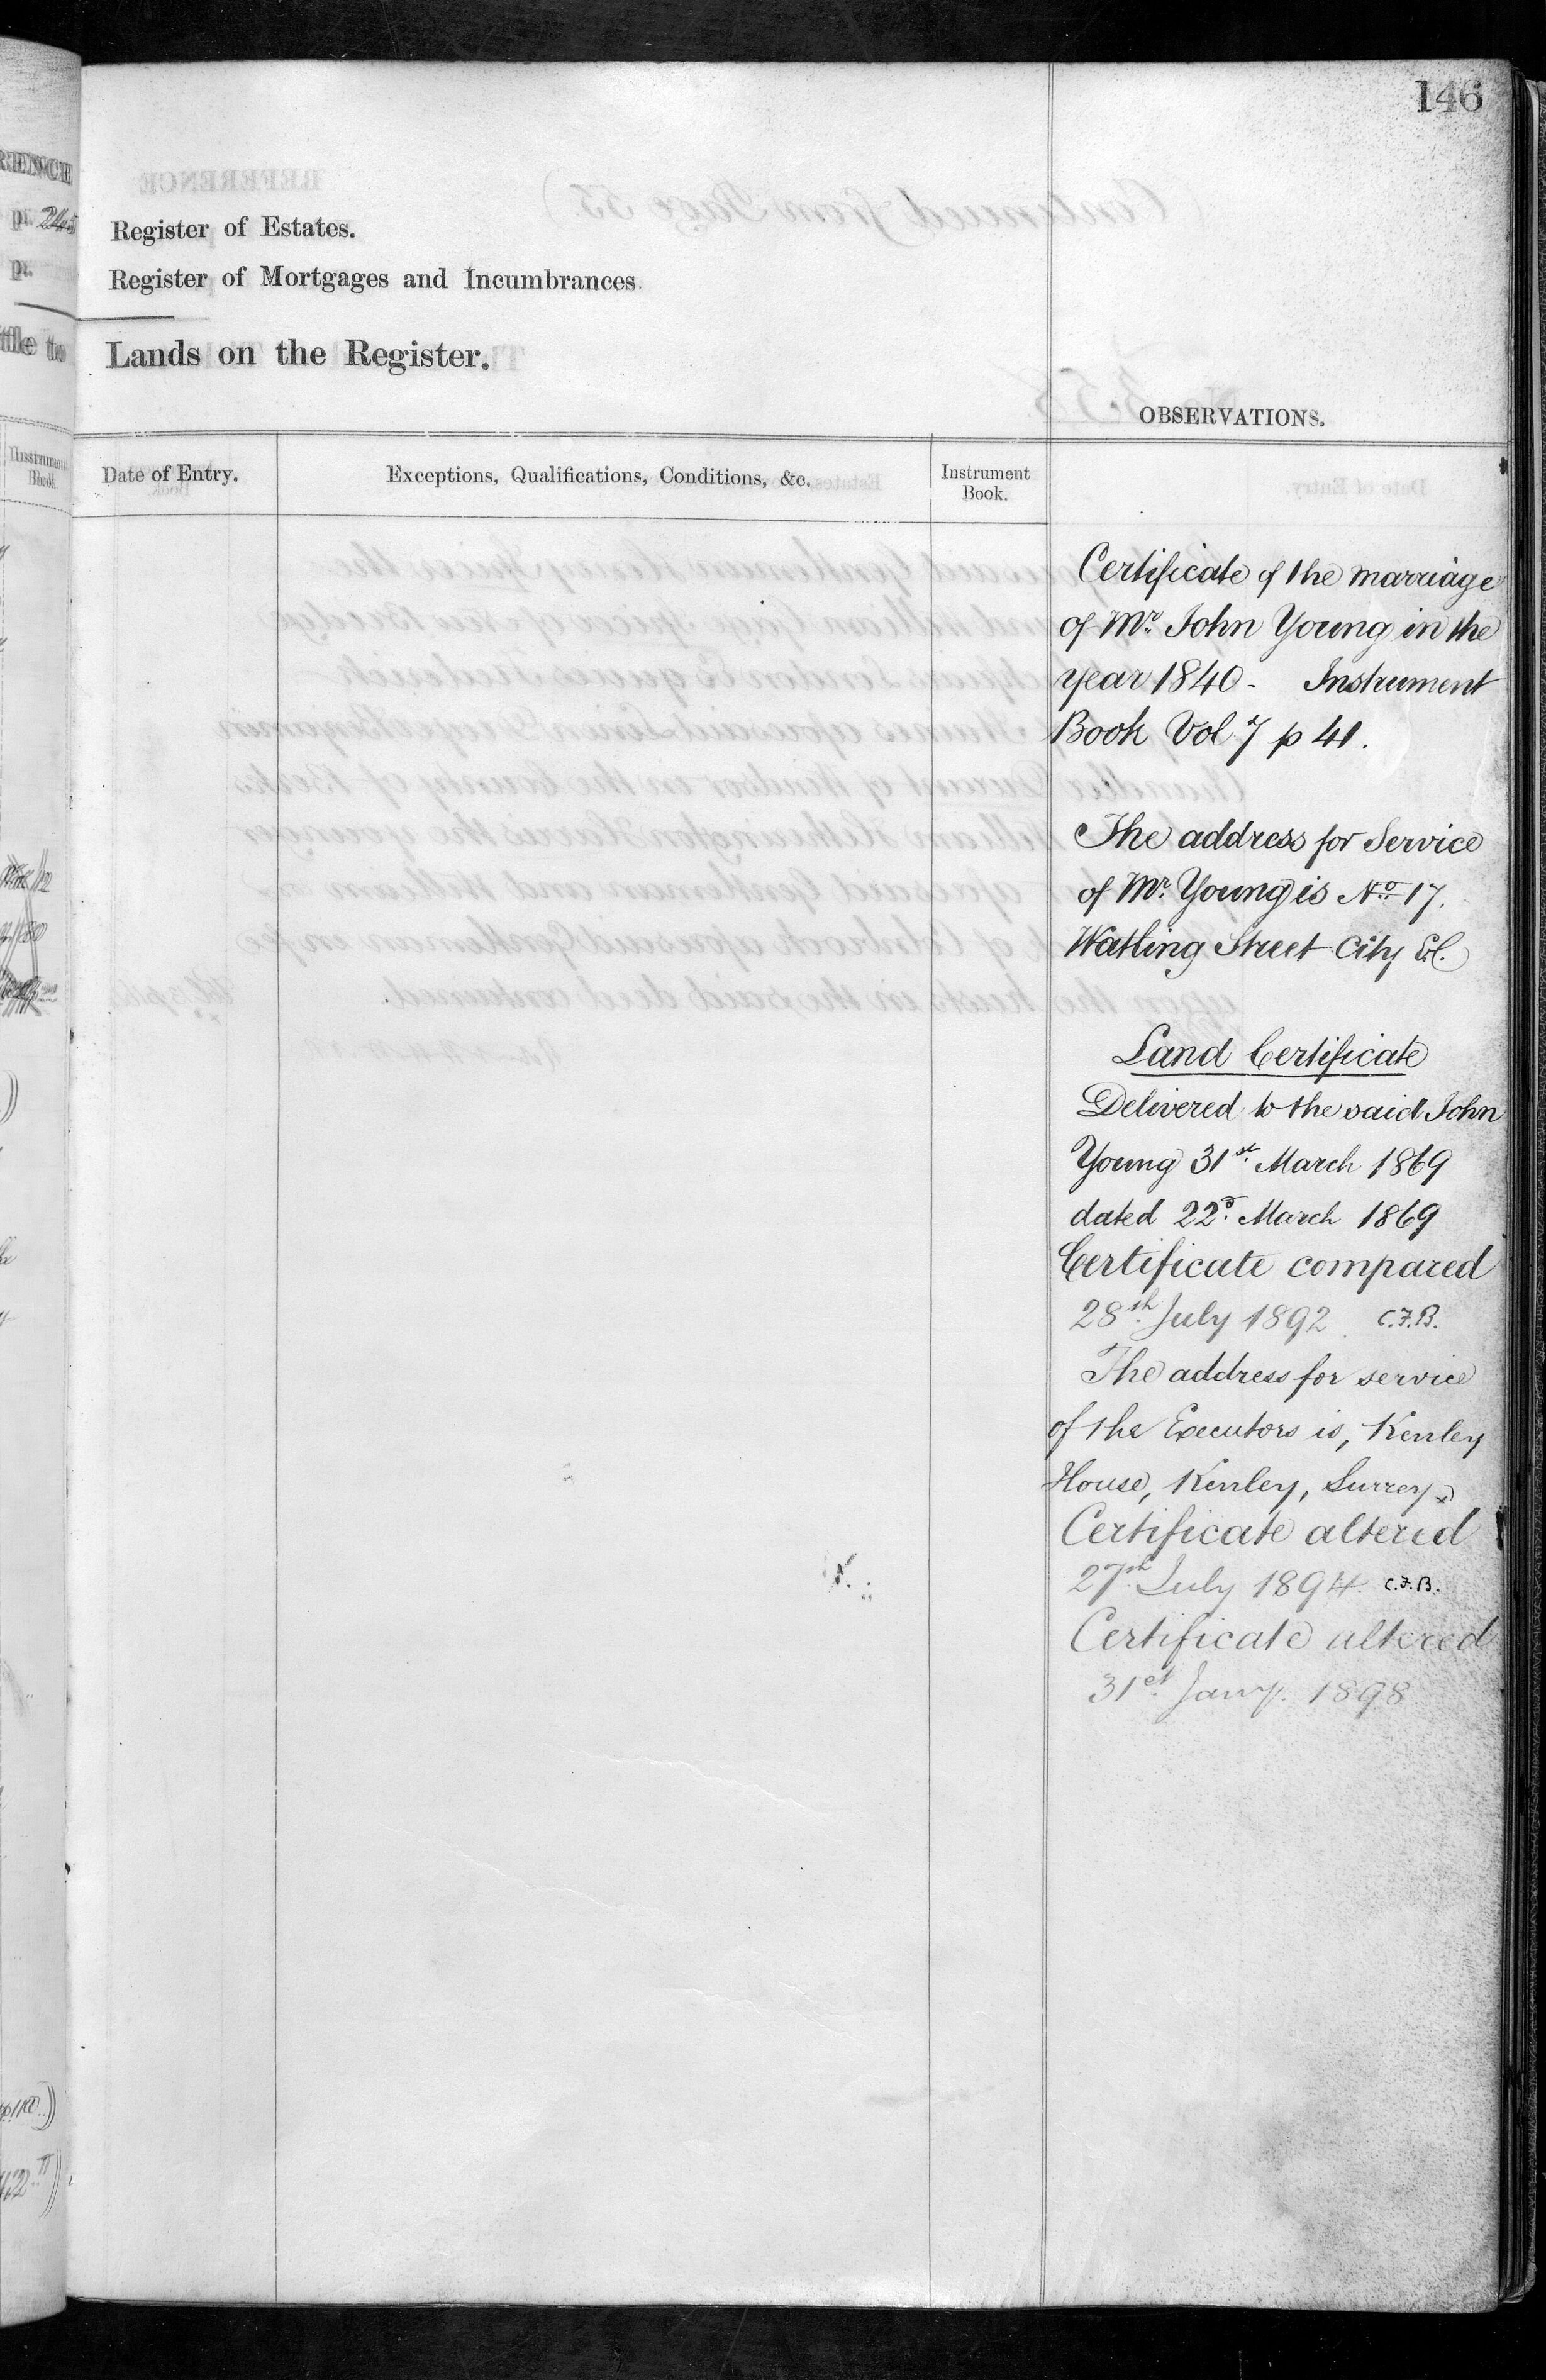 146
Register of Estates.
Register of Mortgages and Incumbrances.
Lands on the Register.
OBSERVATIONS.
Date of Entry.
Exceptions, Qualifications, Conditions, &c.
Instrument
Book.
Certificate of the marriage
of Mr. John Young in the
year 1840 - Instrument
Book Vol 7 p 41.
The address for Service
of Mr. Young is No. 17.
Watling Street City E.C.
Land Certificate
Delivered to the said John
Young 31st. March 1869
dated 22d. March 1869
Certificate compared
28th. July 1892 C.F.B.
The address for service
of the Executors is, Kenley
House, Kenley, Surrey.
Certificate altered
27th. July 1894. C.F.B.
Certificate altered
31st. Jany. 1898